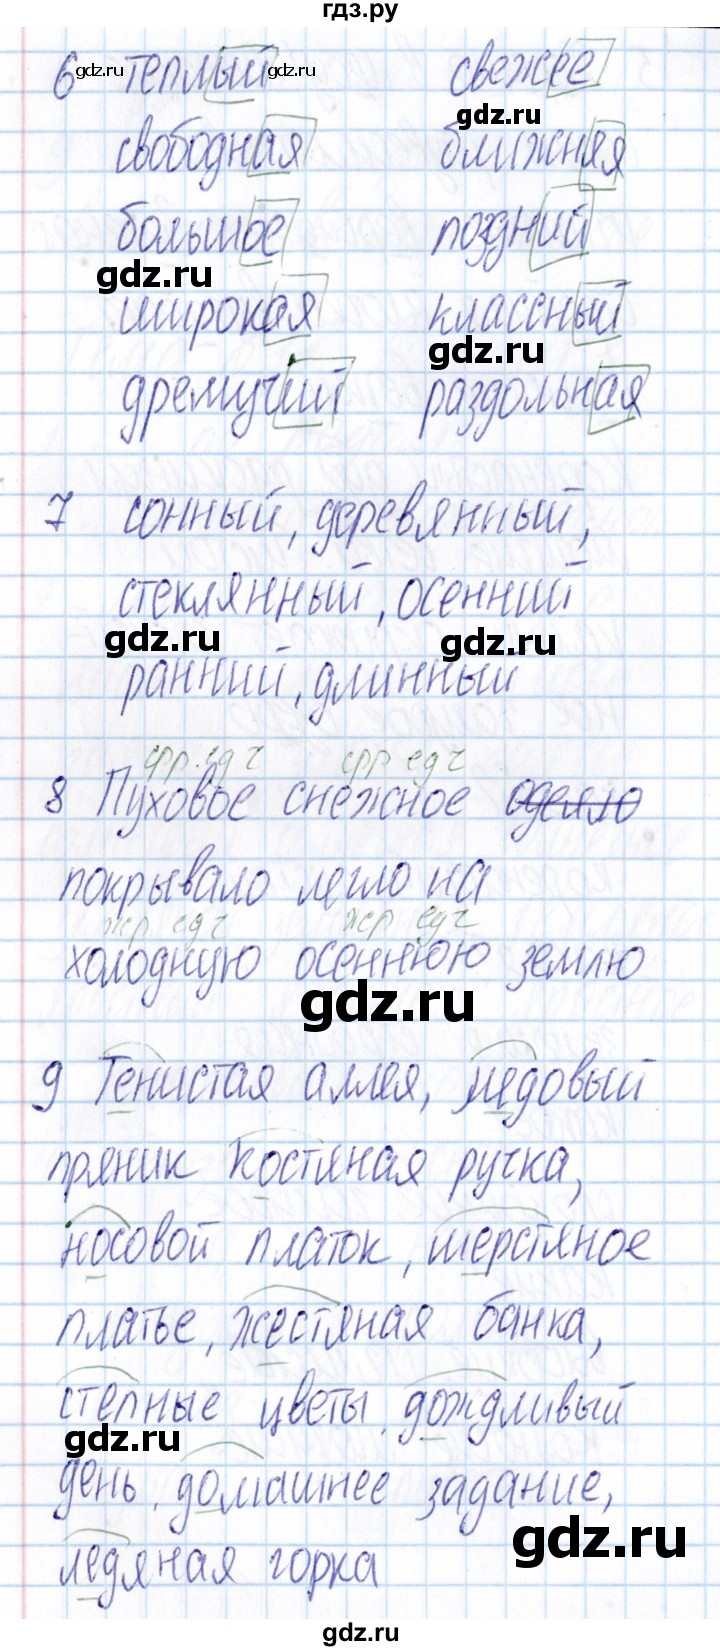 гдз.ру
6 теплый свежее
gdz.ru gdz.ru gdz.ru
gdz.ru
свободная ближняя
большое поздний
gdz.ru
широкая классный
gdz.ru
дремучий раздольная
7 сонный, деревянный,
стеклянный, осенний
gdz.ru gdz.ru
ранний, длинный
ср.р. ед ч ср р ед ч
8 Пуховое снежное одеяло
покрывало легло на
жр ед ч жр ед ч
холодную осеннюю землю
gdz.ru
9 Тенистая аллея, медовый
пряник костяная ручка,
носовой платок, шерстяное
платье, жестяная банка,
степные цветы, дождливый
gdz.ru
день, домашнее задание,
gdz.ru
ледяная горка
gdz.ru